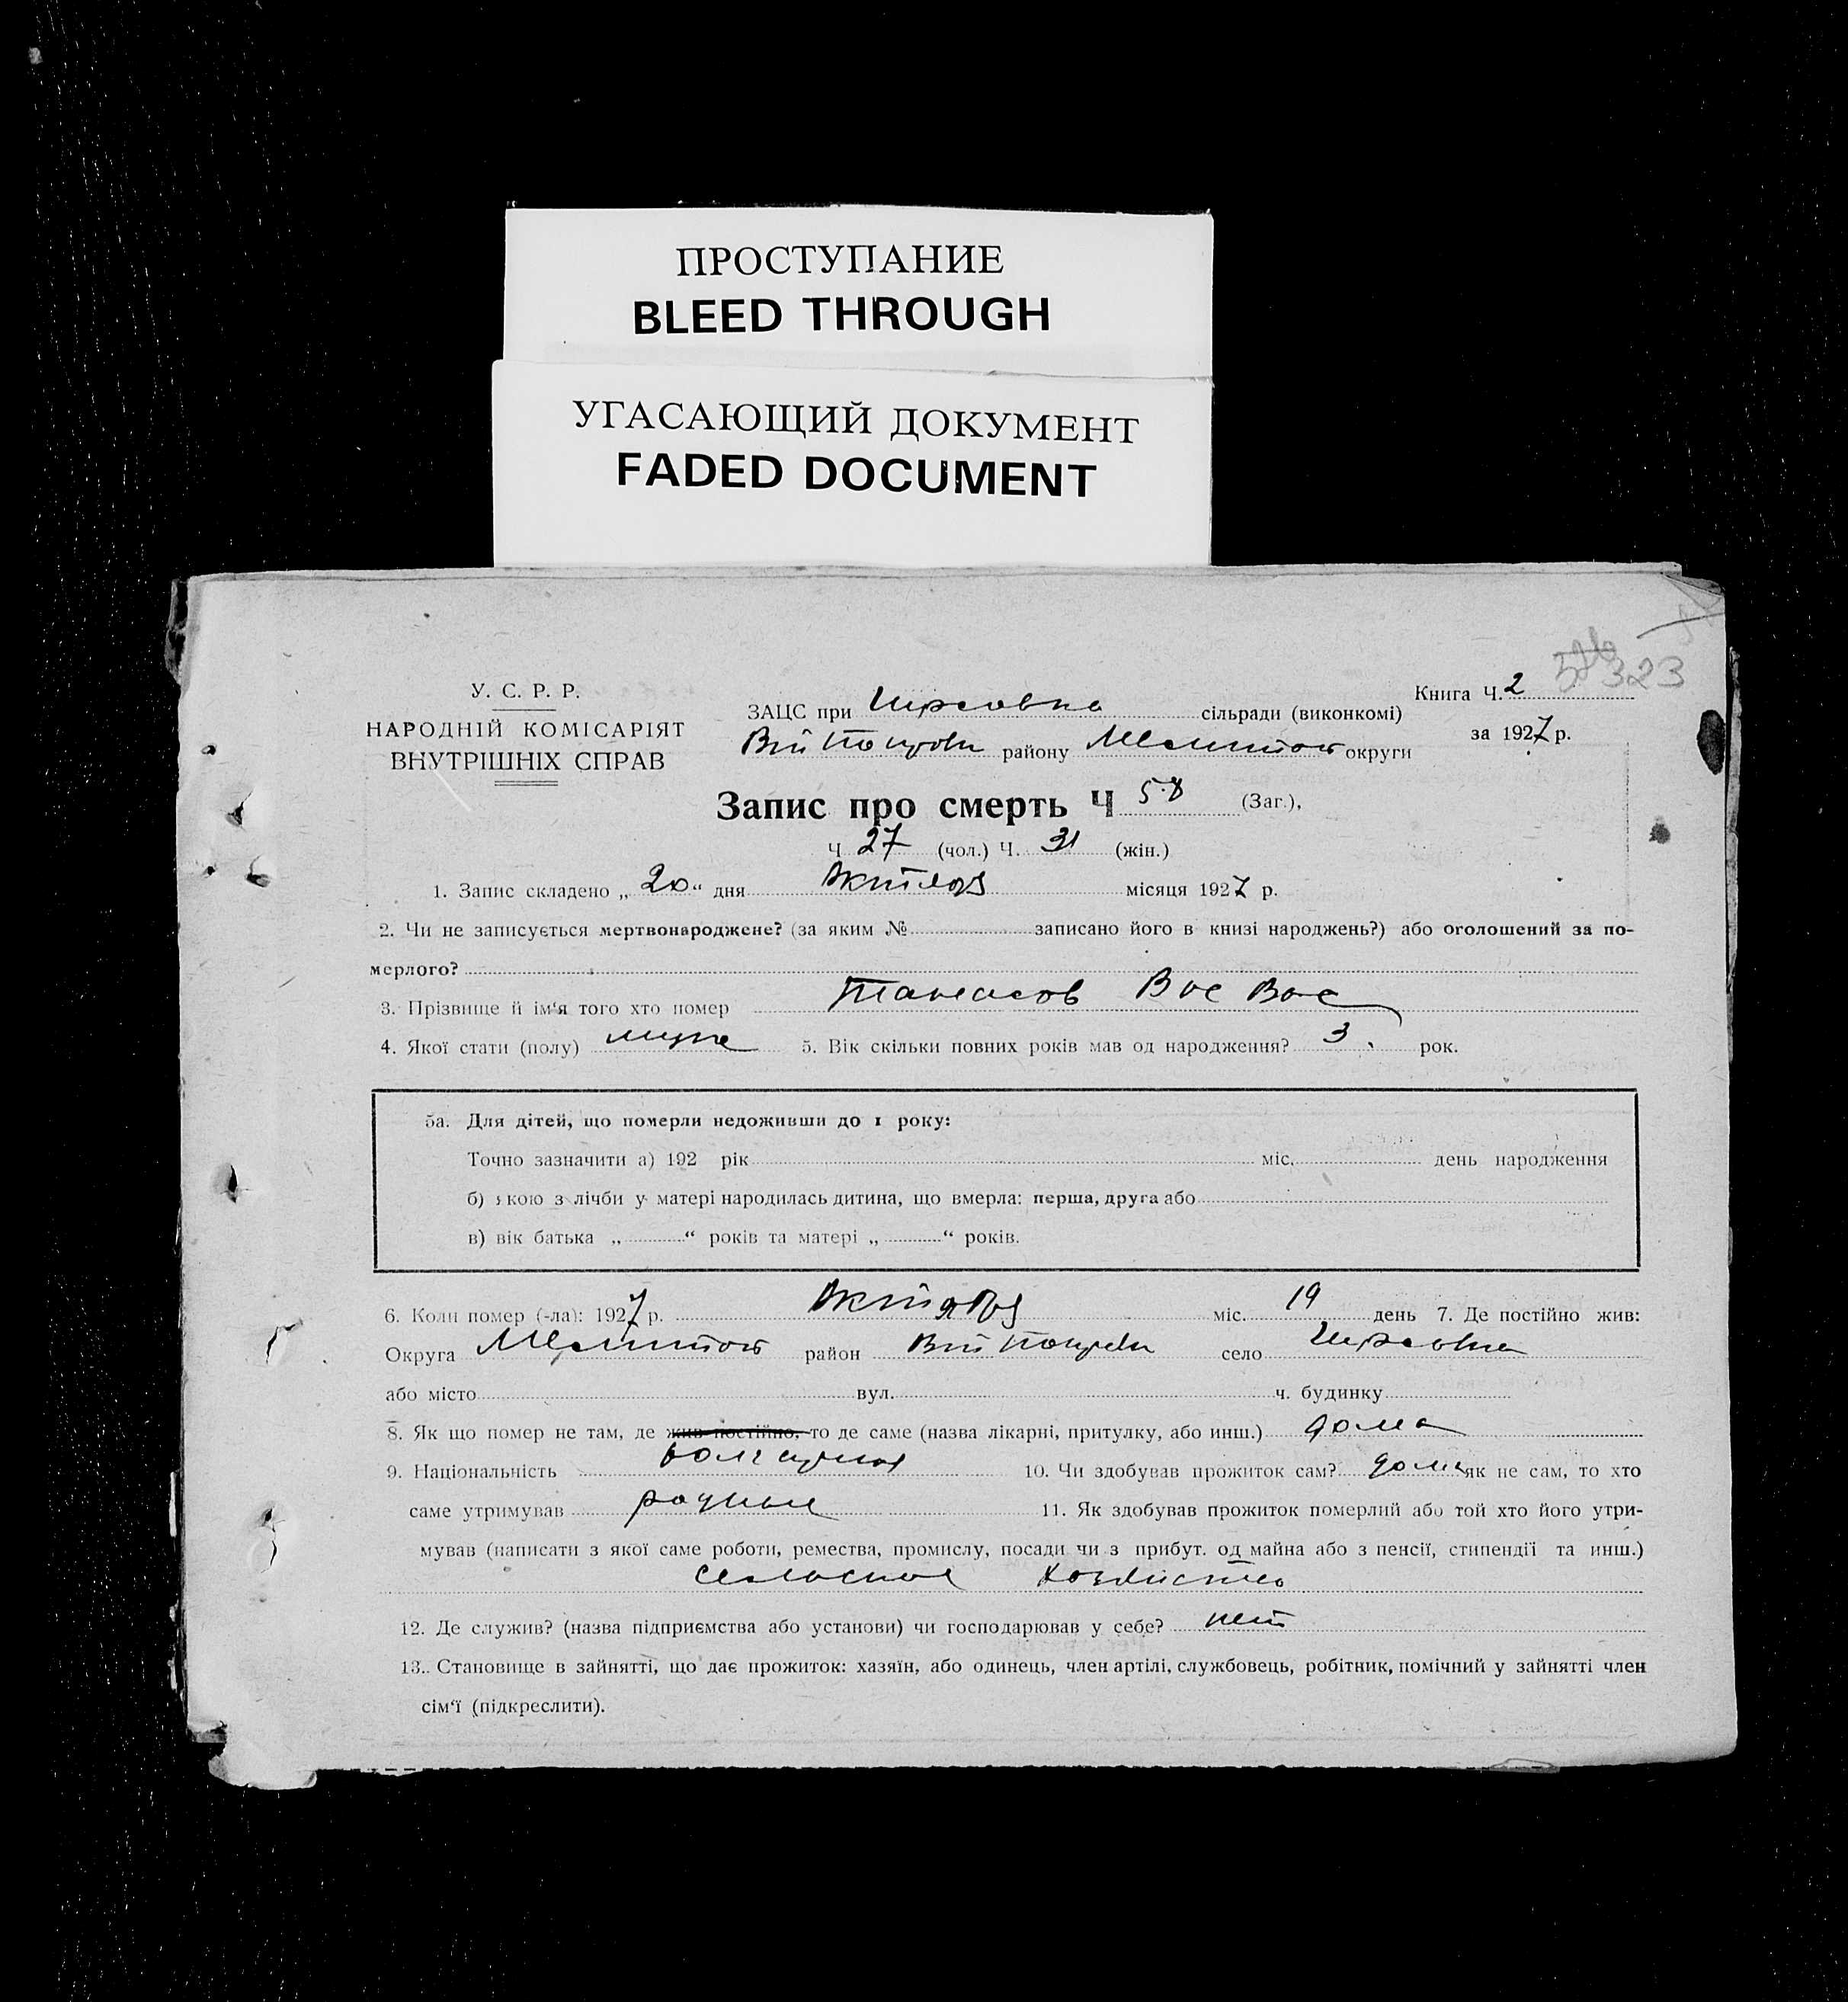 ПРОСТУПАНИЕ
BLEED THROUGH
УГАСАЮЩИЙ ДОКУМЕНТ
FADED DOCUMENT
323
У. С. Р. Р.
НАРОДНІЙ КОМІСАРІЯТ
ВНУТРІШНІХ СПРАВ
Книга Ч. 2
за 1927 р.
ЗАЦС при Гирсовка сільради (виконкомі)
району Мелитоп округи
Запис про смерть Ч 58 (Заг.),
Ч 27 (чол.) Ч. 31 (жін.)
1. Запис складено „ 20 “ дня Октября місяця 1927 р.
2. Чи не записується мертвонароджене? (за яким № записано його в книзі народжень?) або оголошений за по-
мерлого?
3. Прізвище й ім‘я того хто помер Танасов Вас Вас
4. Якої стати (полу) муже 5. Вік скільки повних років мав од народження? 3. рок.
5а. Для дітей, що померли недоживши до 1 року:
Точно зазначити а) 192 рік міс. день народження
б) якою з лічби у матері народилась дитина, що вмерла: перша, друга або
в) вік батька „ “ років та матері „ “ років.
6. Коли помер (-ла): 1927 р. Октября міс. 19 день 7. Де постійно жив:
Округа Мелитоп район село Гирсовка
або місто вул. ч. будинку
8. Як що помер не там, де жив постійно, то де саме (назва лікарні, притулку, або инш.) дома
9. Національність 10. Чи здобував прожиток сам? дома як не сам, то хто
саме утримував родные 11. Як здобував прожиток померлий або той хто його утри-
мував (написати з якої саме роботи, ремества, промислу, посади чи з прибут. од майна або з пенсії, стипендії та инш.)
сельское хозяйство
12. Де служив? (назва підприємства або установи) чи господарював у себе? нет
13. Становище в зайнятті, що дає прожиток: хазяїн, або одинець, член артілі, службовець, робітник, помічний у зайнятті член
сім‘ї (підкреслити).